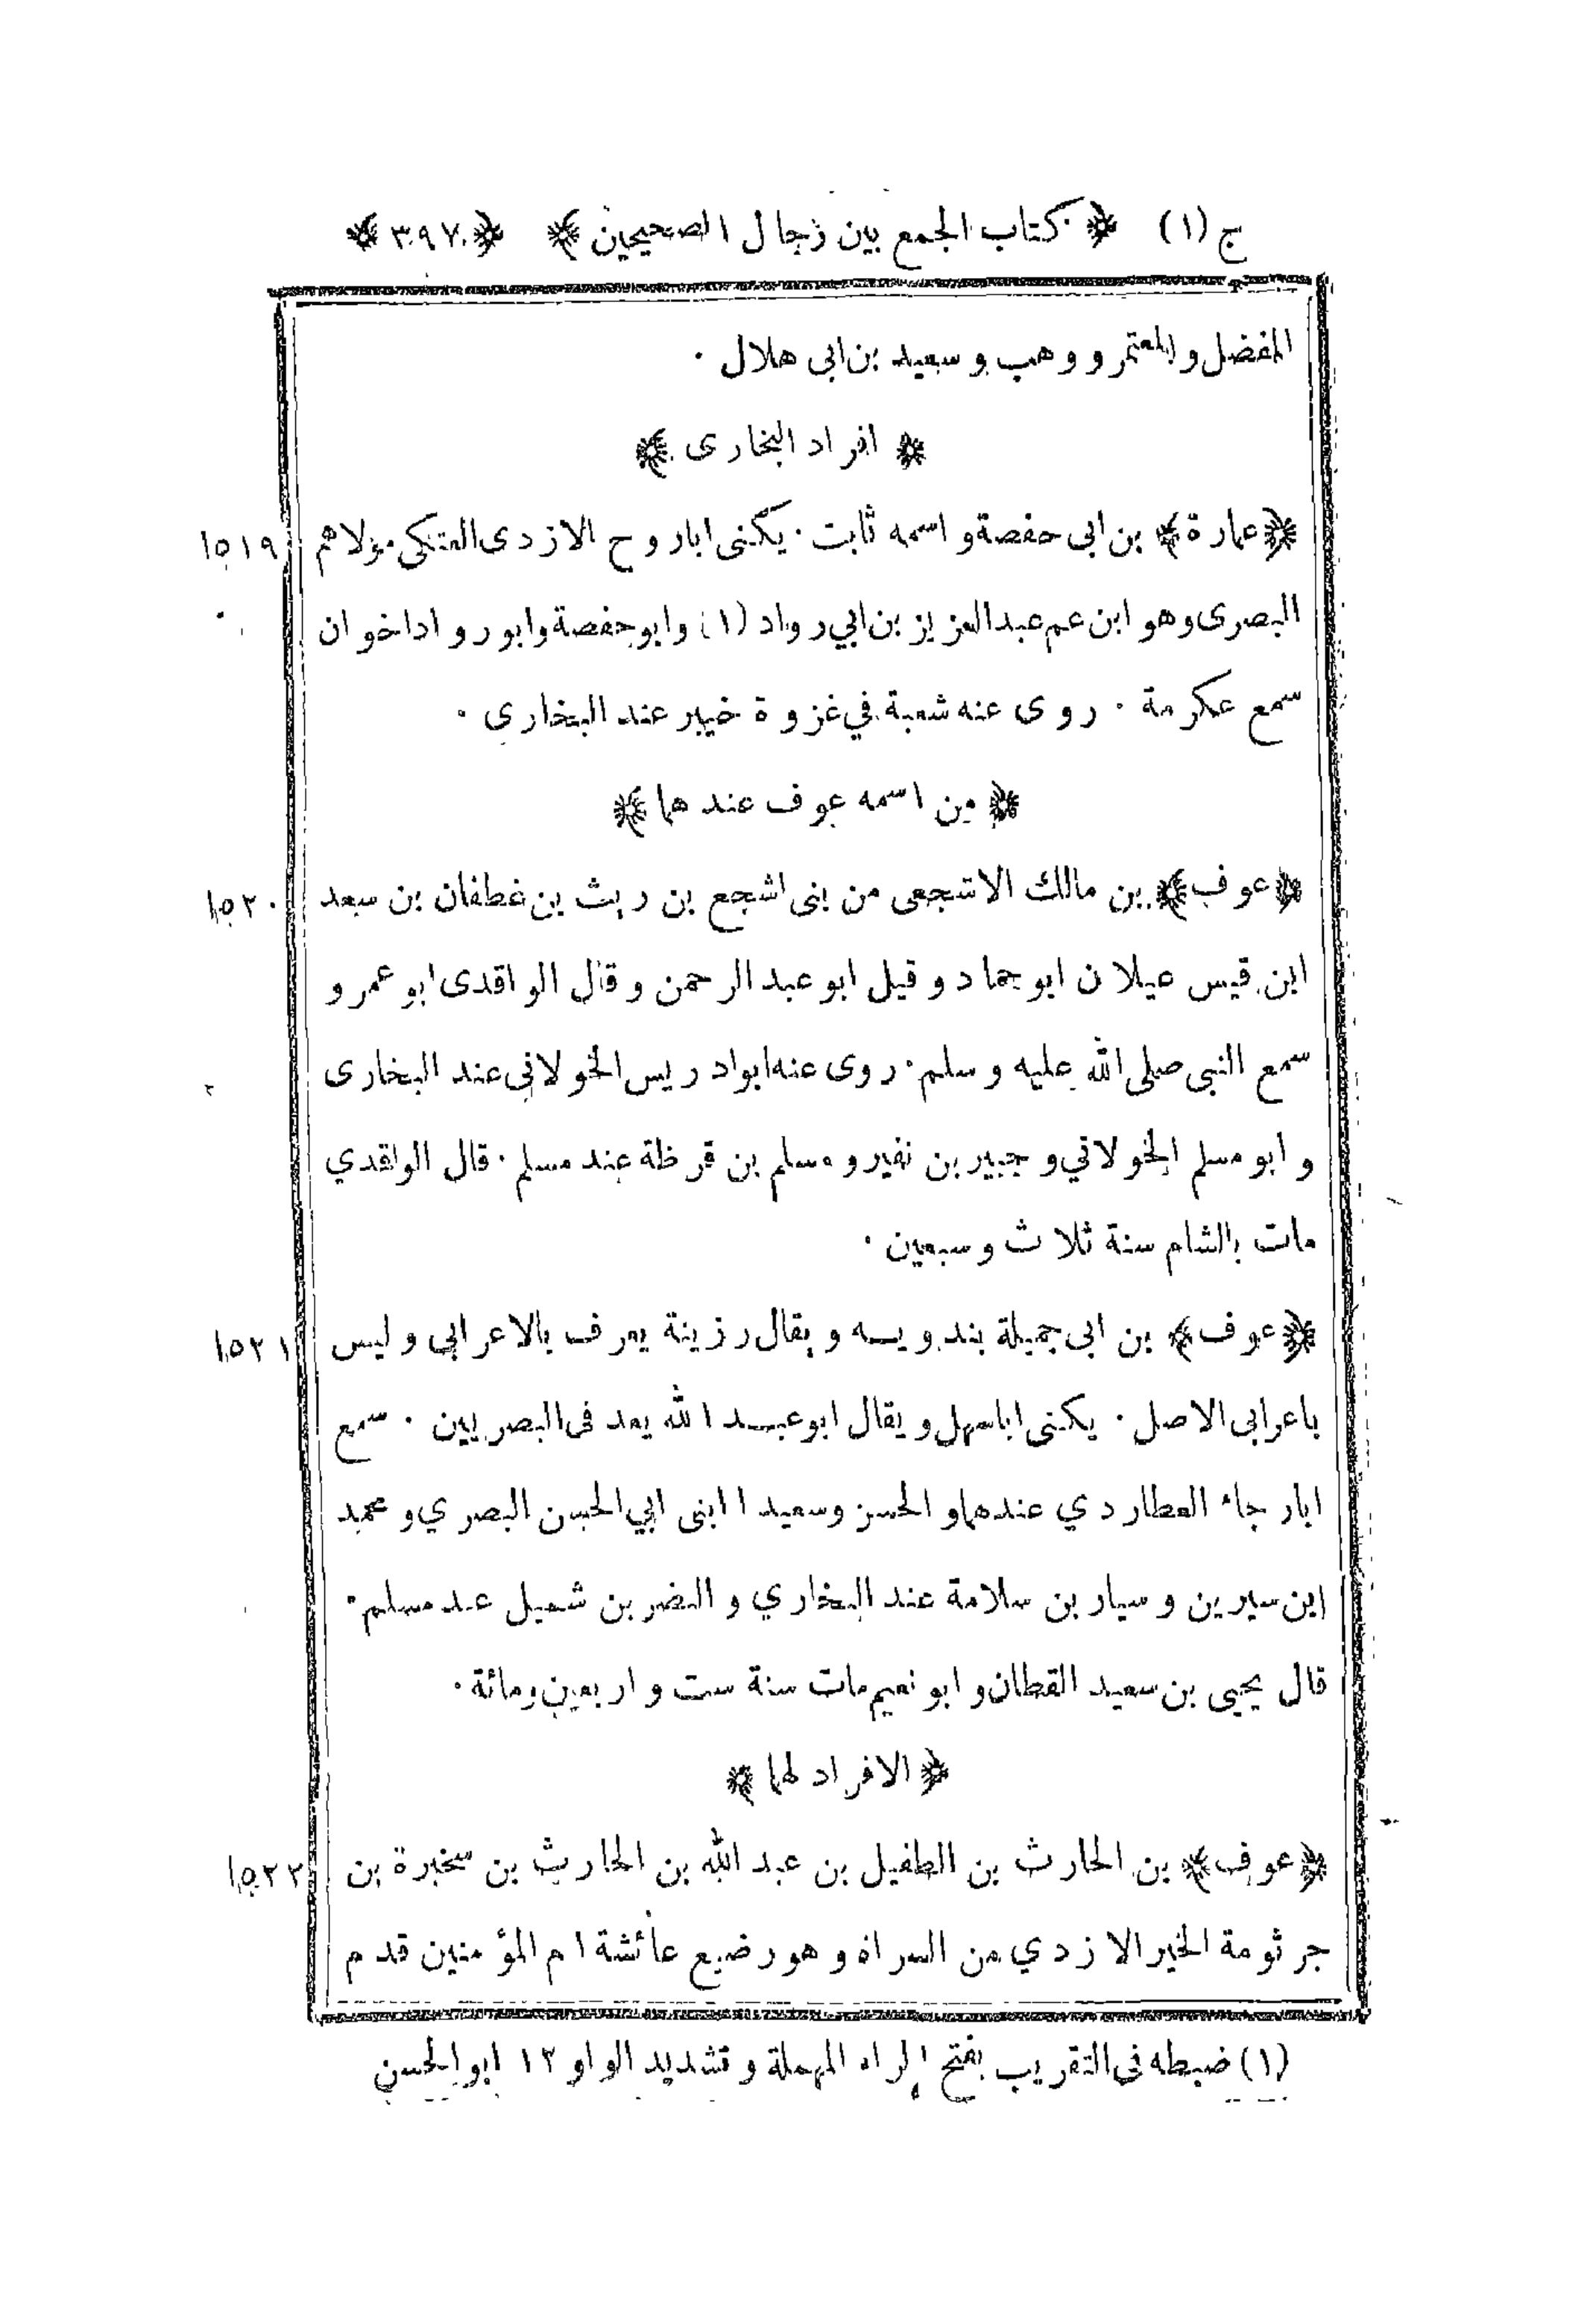 ج (١) ﴿ كتاب الجمع بين رجال الصحيحين ﴾ ﴿ ٣٩٧ ﴾
المفضل والمعتمر و وهب و سعيد بن ابى هلال ٠
﴿ افراد البخارى ﴾
﴿ عمارة ﴾ بن ابى حفصة و اسمه ثابت ٠ يكنى ابا روح الازدى العتكى مولاهم ١٥١٩
البصرى وهو ابن عم عبد العزيز بن ابي رواد (١) وابو حفصة وابو رواد اخوان
سمع عكرمة ٠ روى عنه شعبة في غزوة خيبر عند البخارى ٠
﴿ من اسمه عوف عندهما ﴾
﴿ عوف ﴾ بن مالك الاشجعى من بنى اشجع بن ريث بن غطفان بن سعد ١٥٢٠
ابن قيس عيلان ابو حماد و قيل ابو عبد الرحمن و قال الواقدى ابو عمرو
سمع النبى صلى الله عليه و سلم ٠ روى عنه ابو ادريس الخولاني عند البخارى
و ابو مسلم الخولاني و جبير بن نفير و مسلم بن قرظة عند مسلم ٠ قال الواقدي
مات بالشام سنة ثلاث و سبعين ٠
﴿ عوف ﴾ بن ابى جميلة بندويسه و يقال رزينة يعرف بالاعرابى و ليس ١٥٢١
باعرابى الاصل ٠ يكنى ابا سهل و يقال ابو عبد الله يعد فى البصريين ٠ سمع
ابا رجاء العطاردي عندهما و الحسن و سعيدا ابنى ابي الحسن البصري و محمد
ابن سيرين و سيار بن سلامة عند البخاري و النضر بن شميل عند مسلم ٠
قال يحيى بن سعيد القطان و ابو نعيم مات سنة ست و اربعين و مائة ٠
﴿ الافراد لهما ﴾
﴿ عوف ﴾ بن الحارث بن الطفيل بن عبد الله بن الحارث بن سخبرة بن ١٥٢٢
جرثومة الخير الازدي من السراة و هو رضيع عائشة ام المؤمنين قدم
(١) ضبطه فى التقريب بفتح الراء المهملة و تشديد الواو ١٢ ابو الحسن